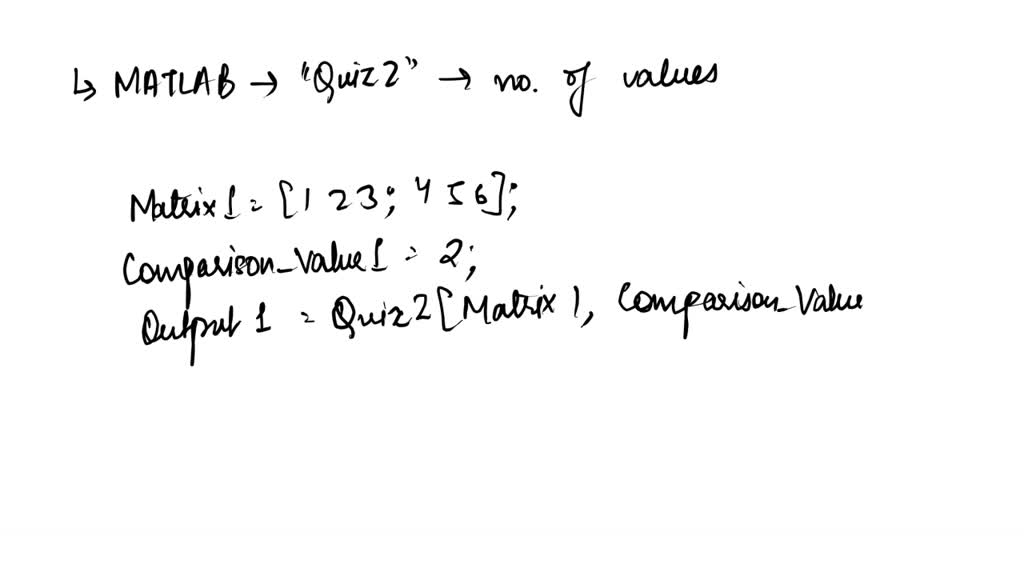 ↳ MATLAB → "Quiz2" → no. of values
Matrix1 = [1 2 3; 4 5 6];
Comparison_Value1 = 2;
Output 1 = Quiz2[Matrix1, Comparison_Value